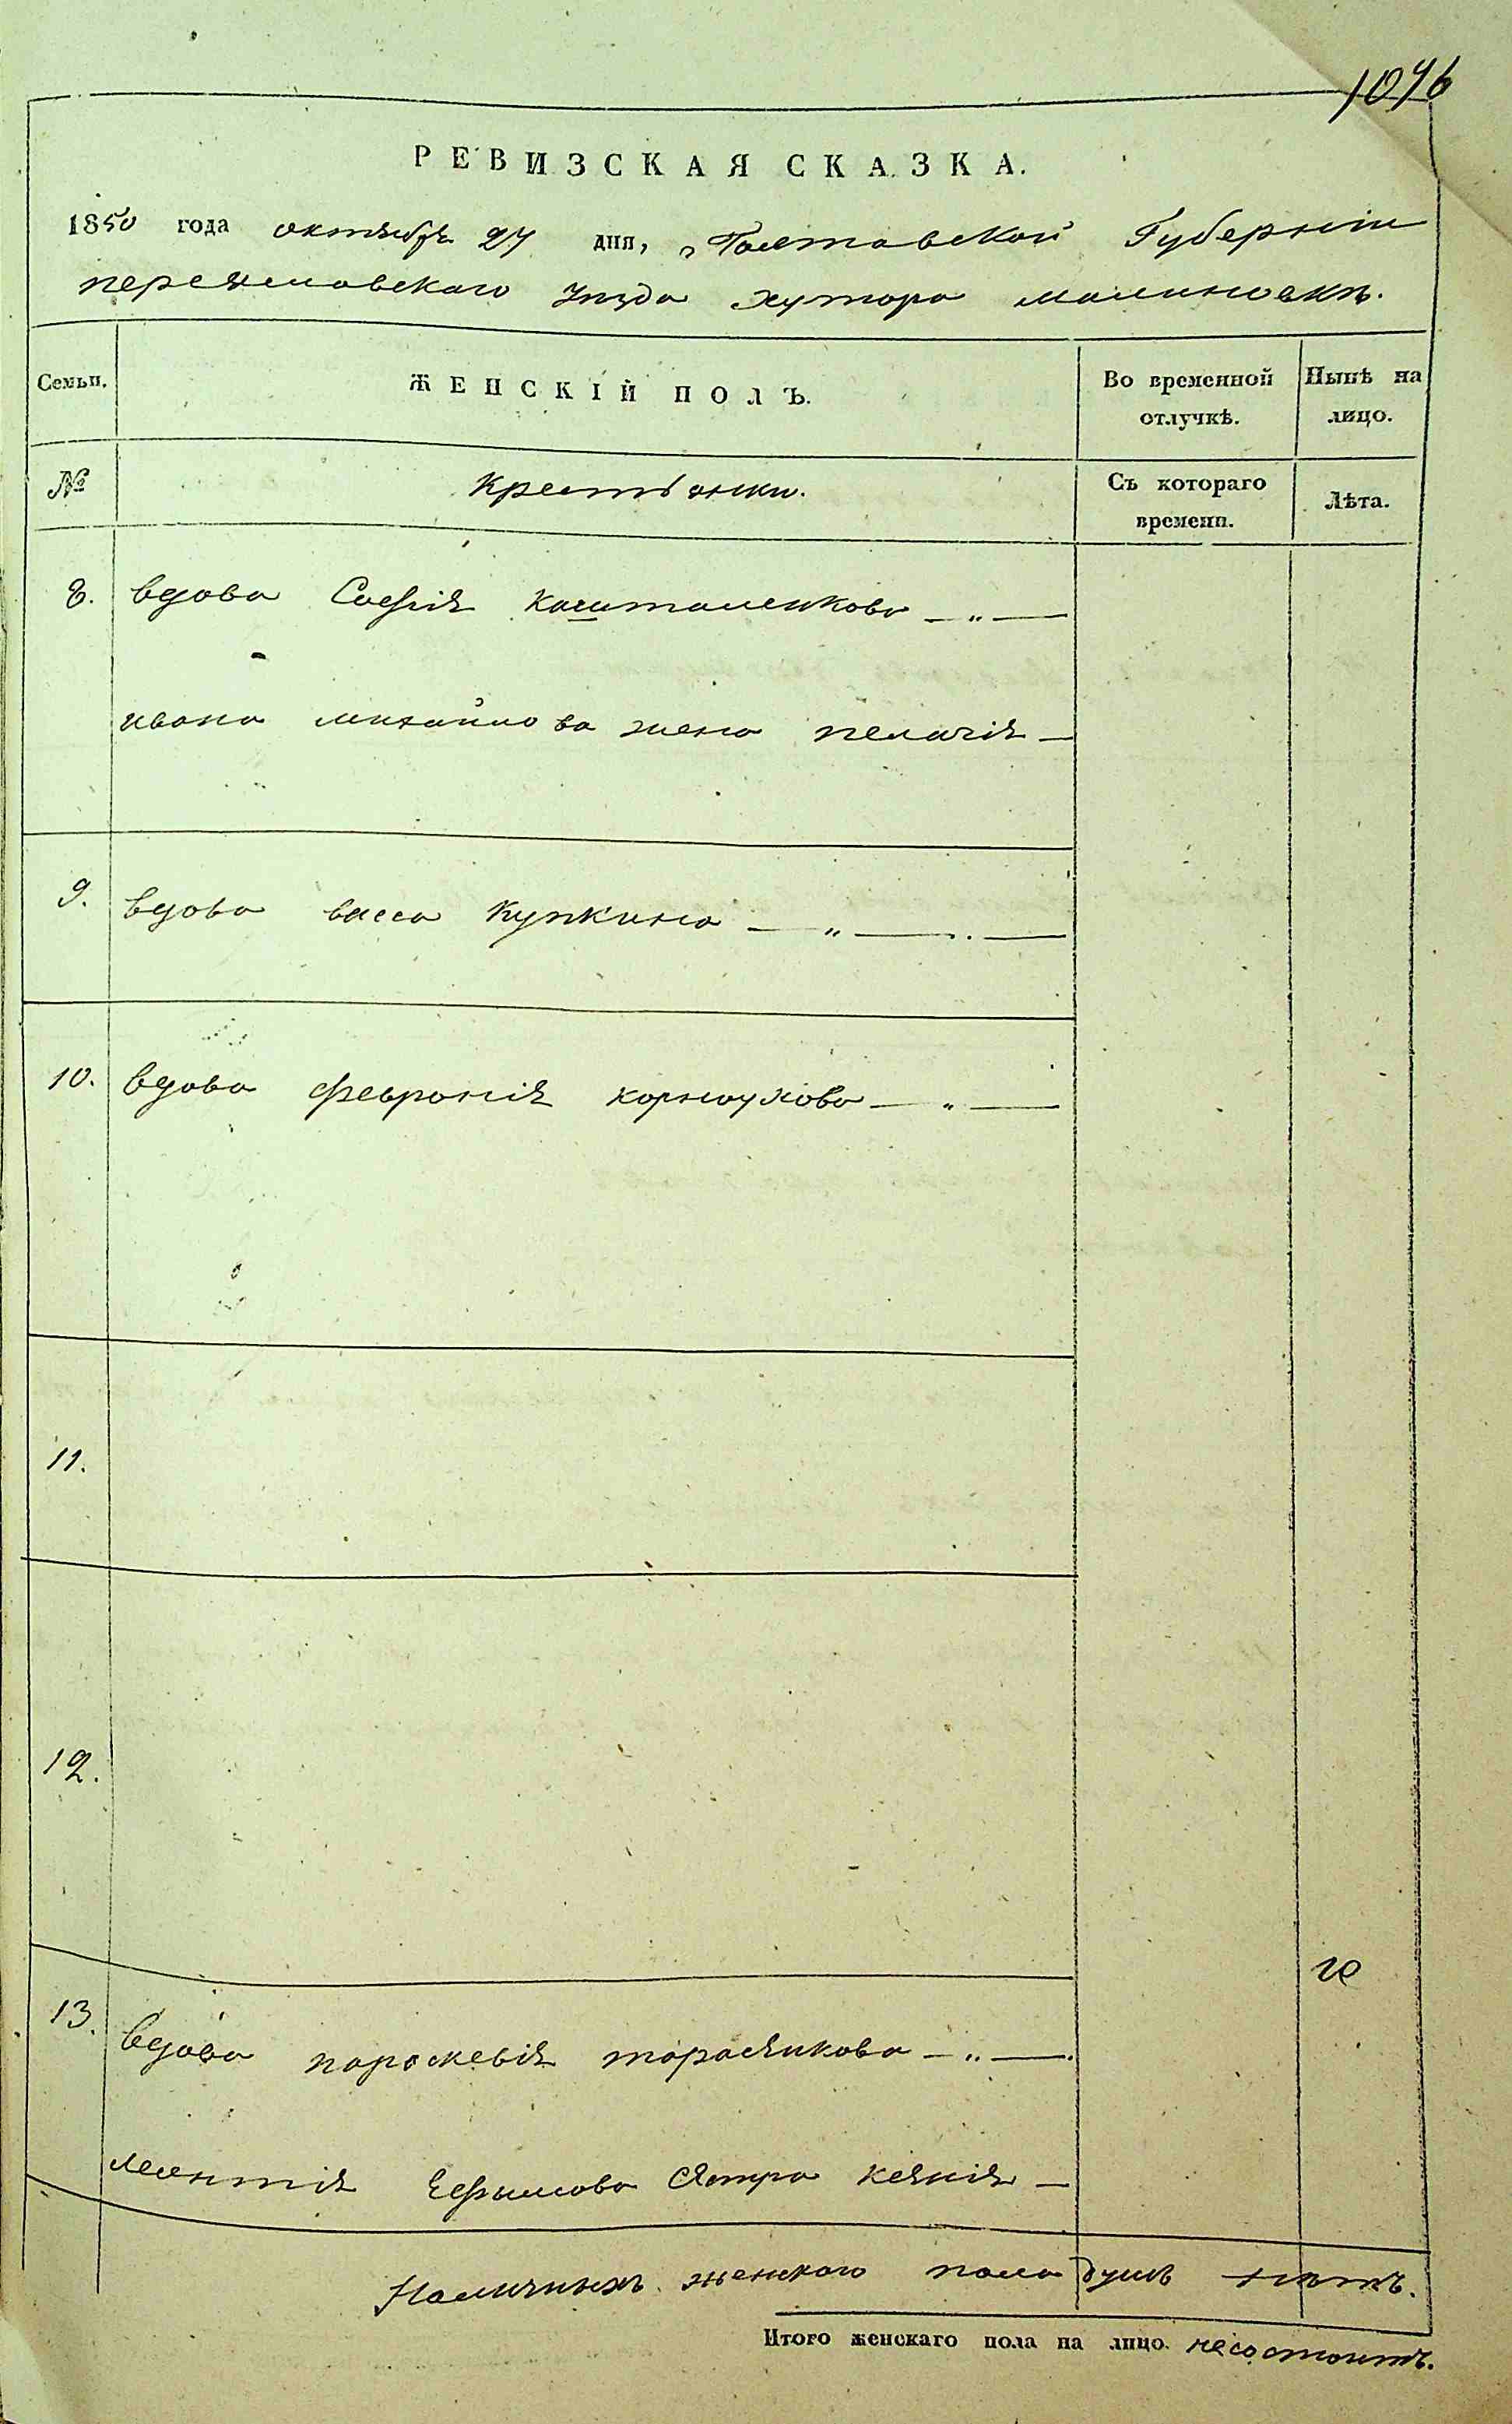 1046
РЕВИЗСКАЯ СКАЗКА.
1850 года октября 27 дня, Полтавской Губерніи
переясловскаго уѣзда хутора малиновки.
Семьи. ЖЕНСКІЙ ПОЛЪ. Во временной отлучкѣ. Нынѣ на лицо.
№ Крестьянки. Съ котораго времени. Лѣта.
8. вдова Софія Кашталенкова — „ —
ивана михайлова жена пелагія —
9. вдова васса Купкина — „ — . —
10. вдова февронія корноухова — „ —
11.
12.
13. вдова параскевія тарасенкова — „ —
леонтія Ефимова сестра ксенія —
Наличныхъ женскаго пола душъ нѣтъ.
Итого женскаго пола на лицо. несостоитъ.